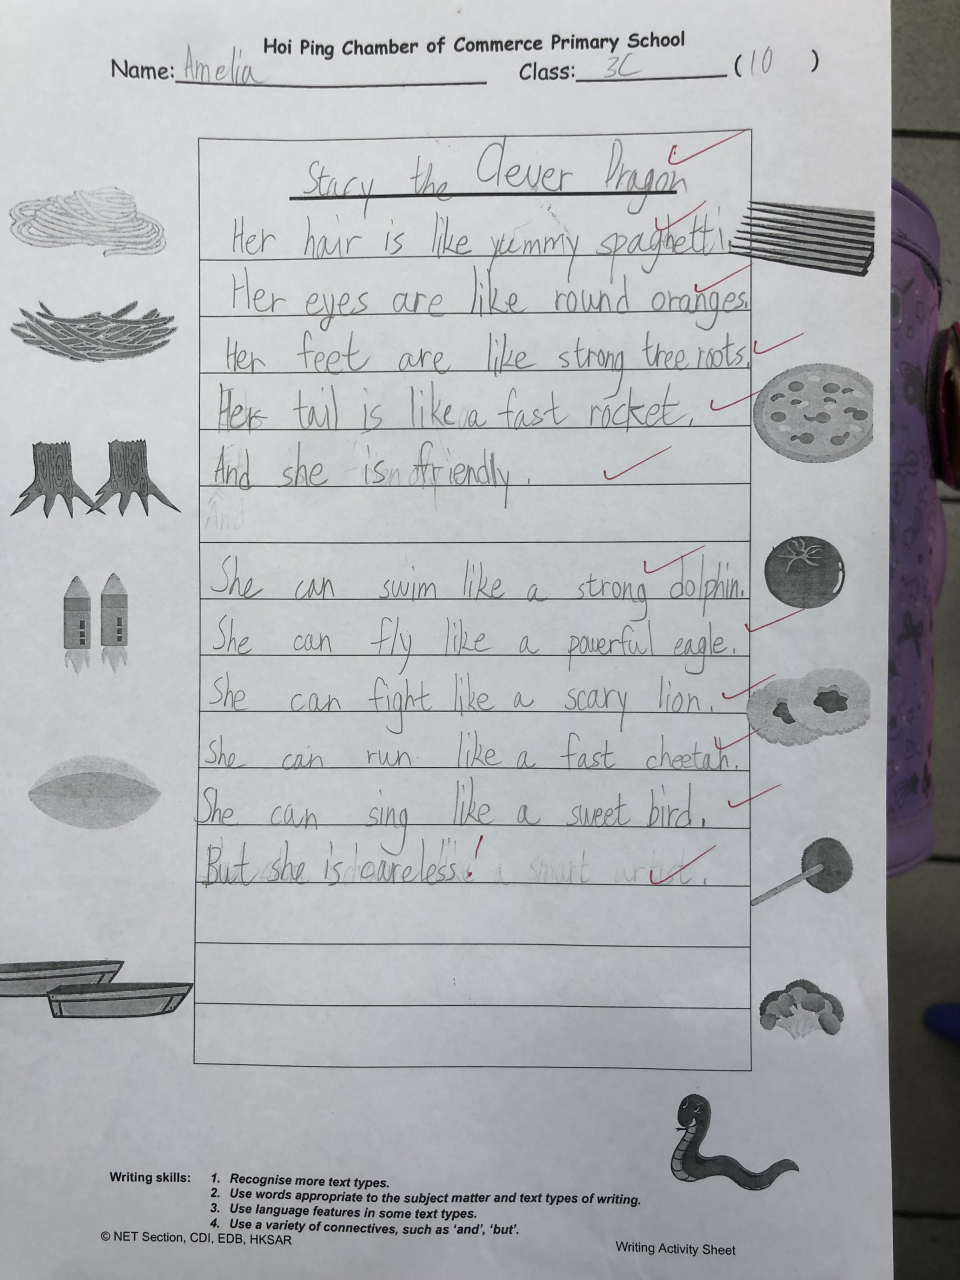 Hoi Ping Chamber of Commerce Primary School
Name: Amelia Class: 3C (10)
Stacy the Clever Dragon
Her hair is like yummy spaghetti.
Her eyes are like round oranges.
Her feet are like strong tree roots.
Her tail is like a fast rocket.
And she is friendly.
She can swim like a strong dolphin.
She can fly like a powerful eagle.
She can fight like a scary lion.
She can run like a fast cheetah.
She can sing like a sweet bird.
But she is careless!
Writing skills: 1. Recognise more text types.
2. Use words appropriate to the subject matter and text types of writing.
3. Use language features in some text types.
4. Use a variety of connectives, such as ‘and’, ‘but’.
© NET Section, CDI, EDB, HKSAR
Writing Activity Sheet